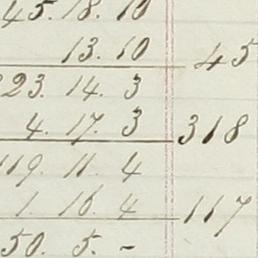 45. 18. 10
13. 10 45
223. 14. 3
4. 17. 3 318
119. 11. 4
1. 16. 4 117
50. 5. -